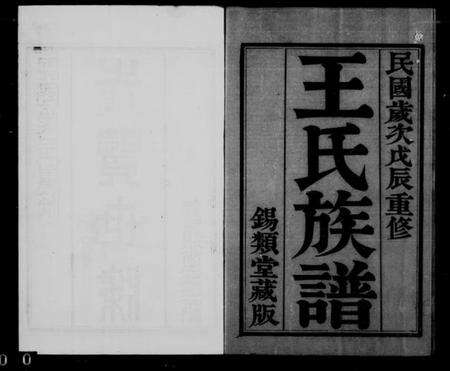 民國歲次戊辰重修
王氏族譜
錫類堂藏版
0 0